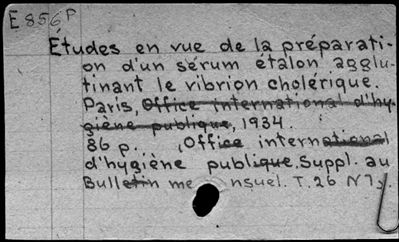 E 856 P
Études en vue de la préparati-
on d'un sérum étalon agglu-
tinant le vibrion cholérique.
Paris, Office international d'hy-
giène publique, 1934.
86 p. , Office international
d'hygiène publique. Suppl. au
Bulletin me nsuel. T. 26 N 7 ).